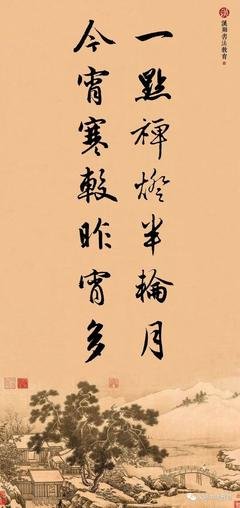 一點禅燈半輪月
今宵寒較昨宵多
漢翔書法教育